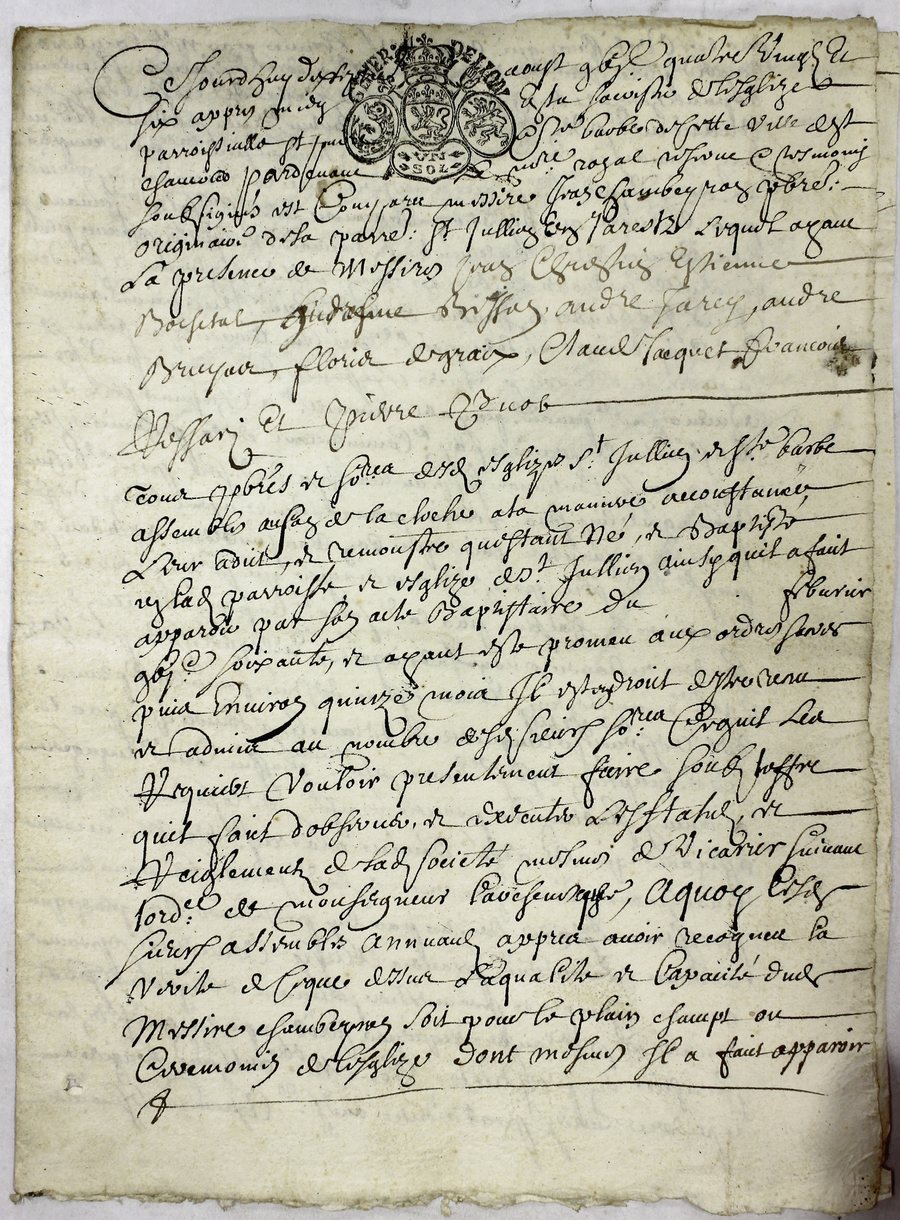 GENER. DE LYON
UN SOL
Cejourdhuy aoust gbjc quatre vingt et
six appres midy et en la sacristie de lesglize
parroissialle st ste barbe de cette ville de st
chamond pardevant le nore royal resome & tesmoins
soubsignés est comparu messire Jean Chambeyron pbre
originaire de la parre: st Jullien en Jarestz lequel ayant
La presence de Messires Jean Estienne
Bonnisson, andre Jarey, andre
Bruyas, floris degraix, Claude Jacquet francois
Ressary et Pierre
tous pbres et sores desd esglizes st Jullien et ste barbe
assemblés au son de la cloche a la maniere accoustumée,
Leur a dit, et remonstré questant né, et Baptisté
en lad parroisse, et esglize de st Jullien ainsy quil a fait
apparoir par son acte Baptistaire du febvrier
gbjc soixante, et ayant esté promeu aux ordres sacres
puis environ quinze mois Il est en droit destre receu
et admis au nombre desd sieurs sores Ce quil les
Requiert vouloir presentement faire soubz loffre
quil faict dobserver, et executer Les statuts, et
Reiglements de lad société mesmes de vicarier suivant
lorde de monseigneur Larchevesque, Aquoy lesd
sieurs assemblés annuant appres avoir recogneu la
verite de ce que dessus La qualité et capacité dud
Messire chambeyron soit pour le plain champt ou
Ceremonies de lesglize dont mesmes Il a faict apparoir